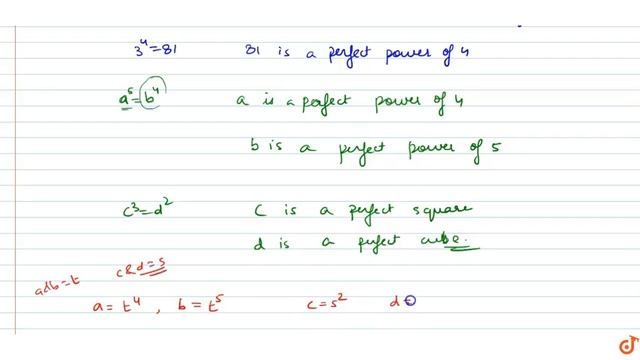 3⁴=81 81 is a perfect power of 4
a⁵=b⁴ a is a perfect power of 4
b is a perfect power of 5
c³=d² c is a perfect square
d is a perfect cube.
a&b=t c&d=s
a=t⁴, b=t⁵ c=s² d=